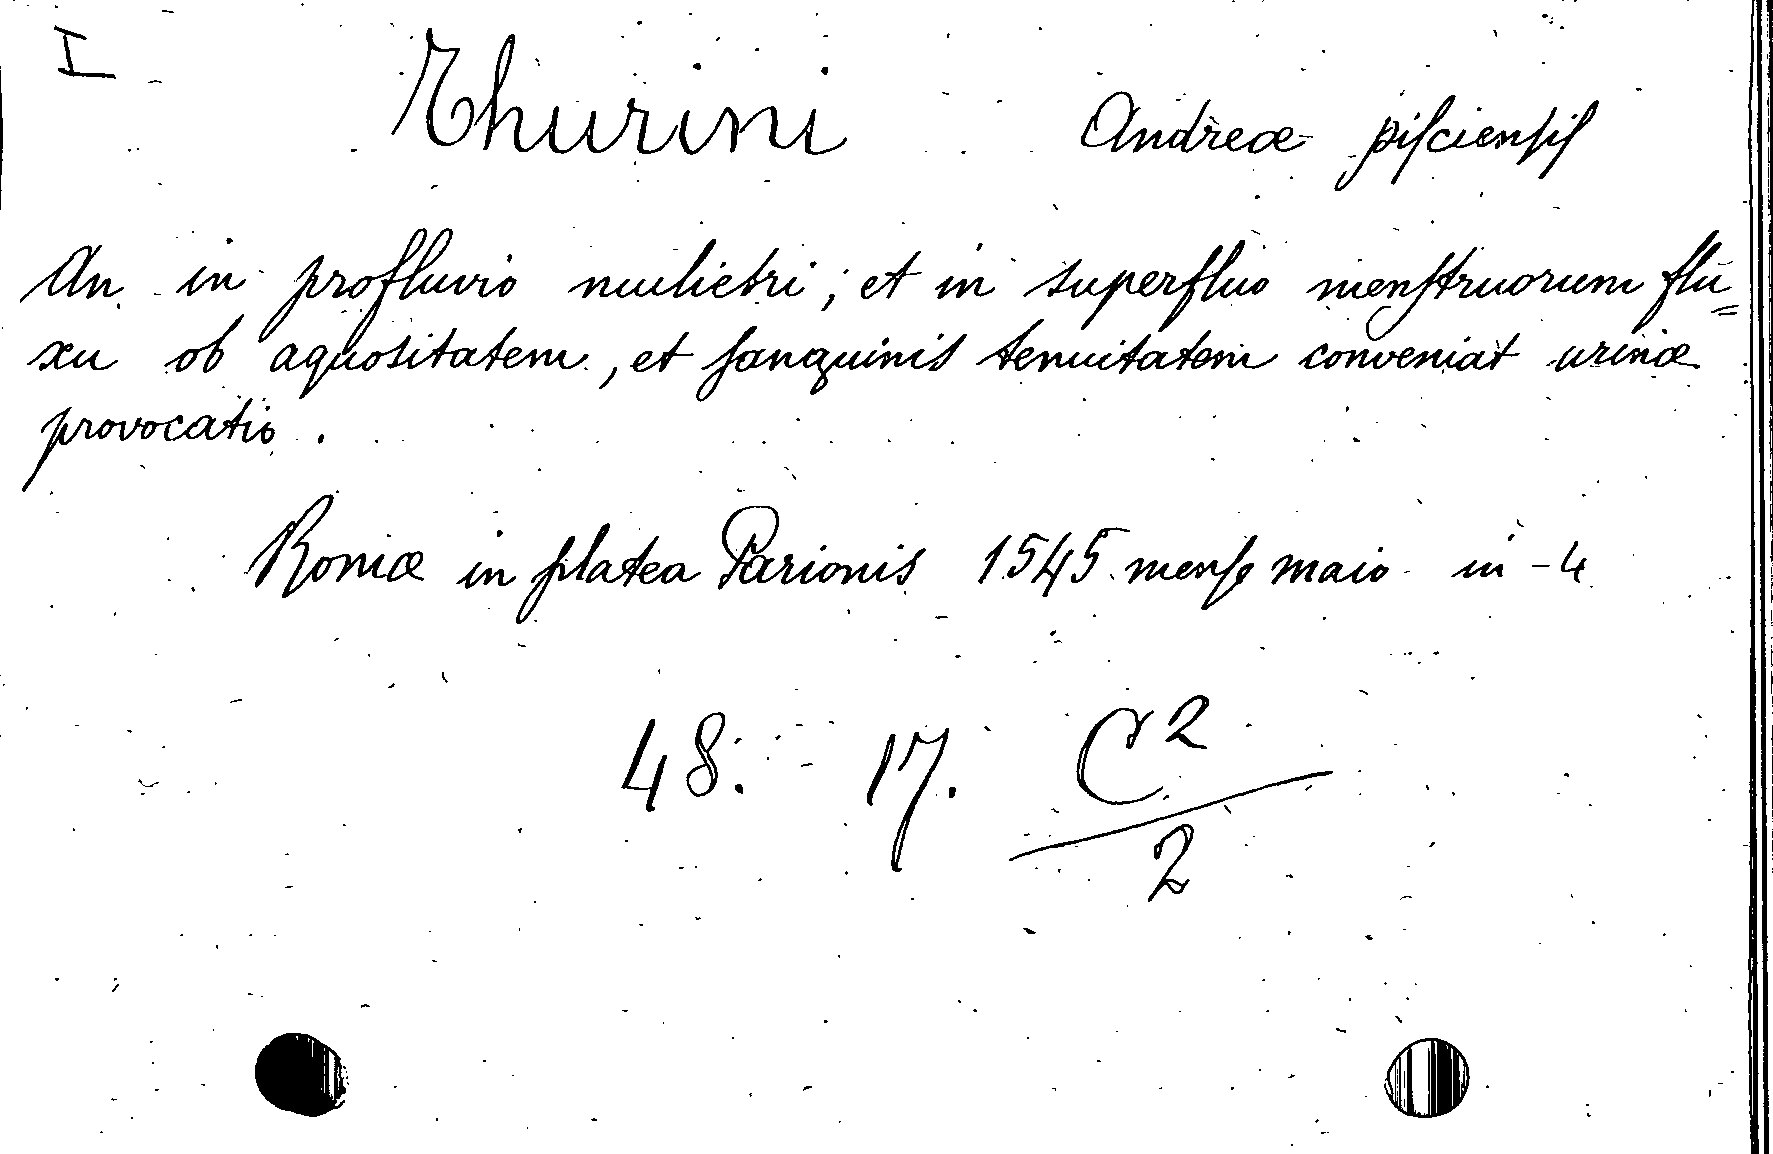 I
Thurini Andreæ piſcienſiſ
An in profluvio muliebri; et in superfluo menſtruorum flu=
xu ob aquositatem, et ſanguinis tenuitatem conveniat urinæ
provocatio.
Romæ in platea Parionis 1545 menſe maio in-4
48. 17. C²/2